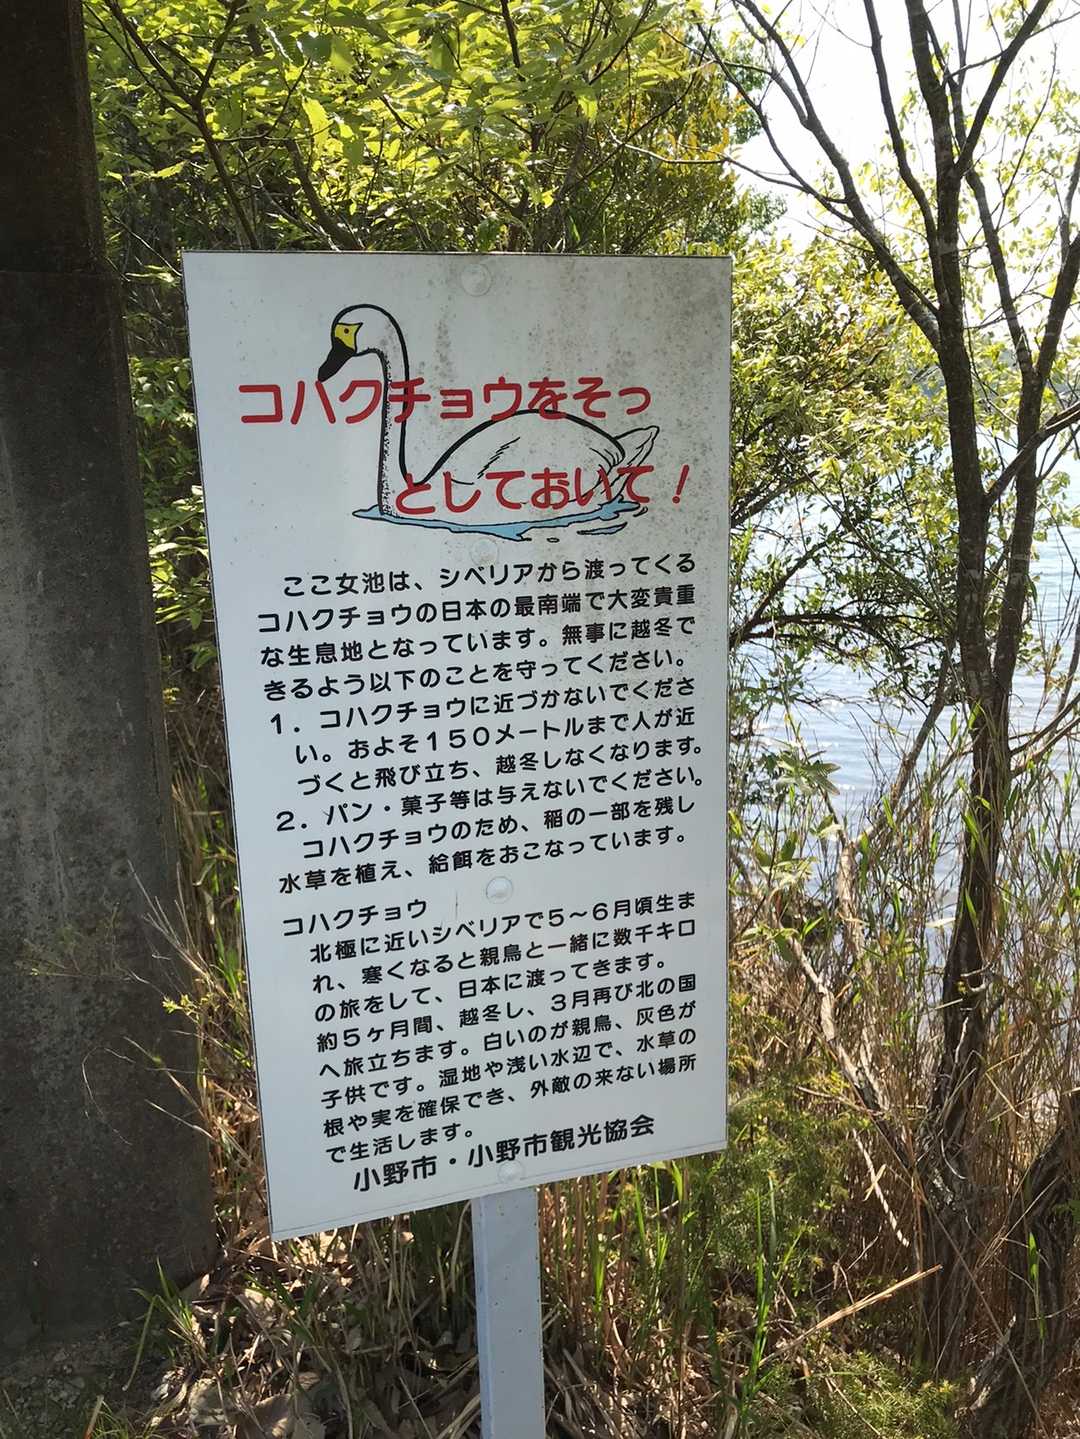 コハクチョウをそっ
としておいて！
ここ女池は、シベリアから渡ってくる
コハクチョウの日本の最南端で大変貴重
な生息地となっています。無事に越冬で
きるよう以下のことを守ってください。
１．コハクチョウに近づかないでくださ
い。およそ１５０メートルまで人が近
づくと飛び立ち、越冬しなくなります。
２．パン・菓子等は与えないでください。
コハクチョウのため、稲の一部を残し
水草を植え、給餌をおこなっています。
コハクチョウ
北極に近いシベリアで５～６月頃生ま
れ、寒くなると親鳥と一緒に数千キロ
の旅をして、日本に渡ってきます。
約５ヶ月間、越冬し、３月再び北の国
へ旅立ちます。白いのが親鳥、灰色が
子供です。湿地や浅い水辺で、水草の
根や実を確保でき、外敵の来ない場所
で生活します。
小野市・小野市観光協会